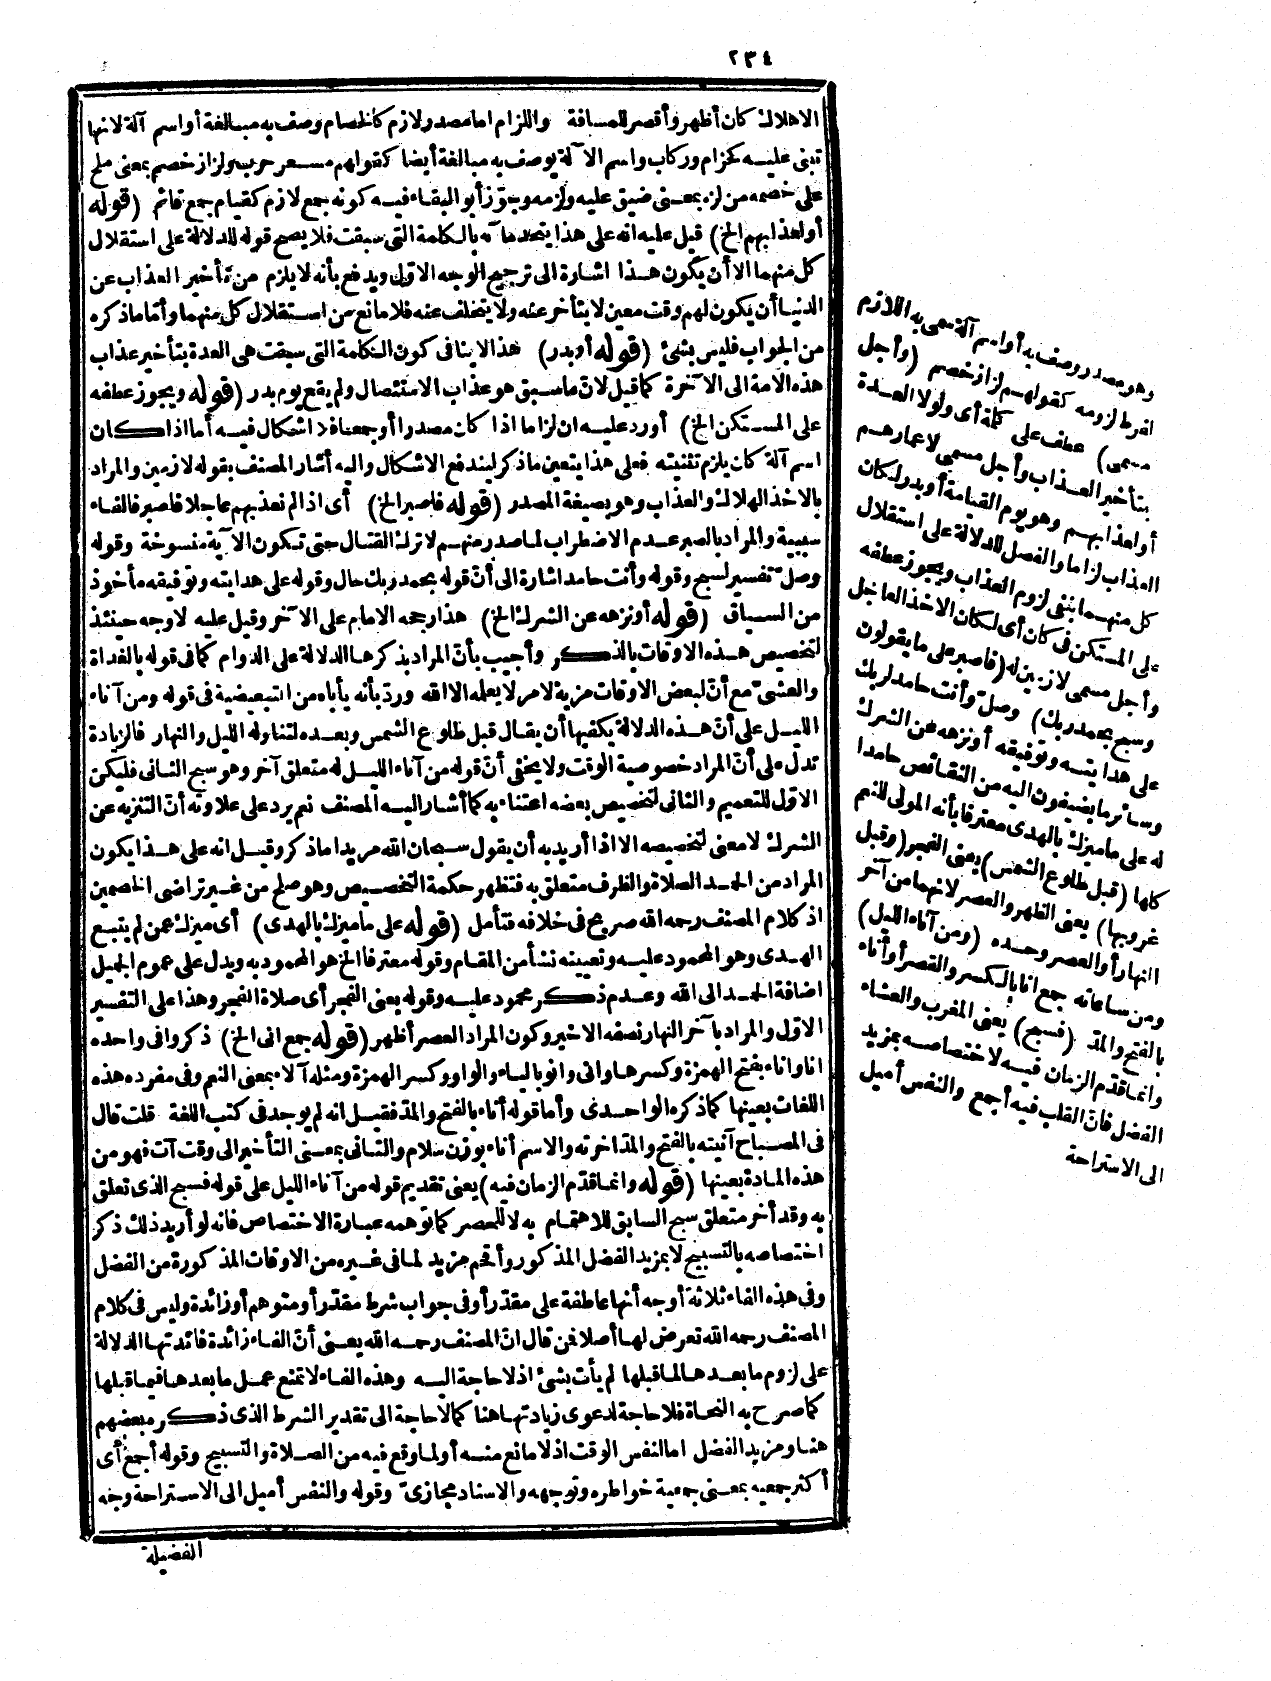 ٢٣٤
الاهلاك كان أظهر وأقصر للمسافة واللزام امامصدر لازم كالخصام وصف به مبالغة أو اسم آلة لانها
تبنى عليه كحزام وركاب واسم الآلة يوصف به مبالغة أيضا كقولهم مسعر حرب ولزاز خصم بمعنى ملح
على خصمه من لزه بمعنى ضيق عليه ولزمه وجوّز أبو البقاء فيه كونه جمع لازم كقيام جمع قائم (قوله
أو لعذابهم الخ) قيل عليه انه على هذا يتحد مآله بالكلمة التى سبقت فلا يصح قوله للدلالة على استقلال
كل منهما الا أن يكون هذا اشارة الى ترجيح الوجه الاوّل ويدفع بأنه لا يلزم من تأخير العذاب عن
الدنيا أن يكون لهم وقت معين لا يتأخر عنه ولا يتخلف عنه فلا مانع من استقلال كل منهما وأما ما ذكره
من الجواب فليس بشئ (قوله أو بدر) هذا لا ينافى كون الكلمة التى سبقت هى العدة بتأخير عذاب
هذه الامة الى الآخرة كما قيل لانّ ما سبق هو عذاب الاستئصال ولم يقع يوم بدر (قوله ويجوز عطفه
على المستكن الخ) أورد عليه ان لزاما اذا كان مصدرا أو جمعا فلا اشكال فيه أما اذا كان
اسم آلة كان يلزم تثنيته فعلى هذا يتعين ما ذكر ليندفع الاشكال واليه أشار المصنف بقوله لازمين والمراد
بالاخذ الهلاك والعذاب وهو بصيغة المصدر (قوله فاصبر الخ) أى اذا لم نعذبهم عاجلا فاصبر فالفاء
سببية والمراد بالصبر عدم الاضطراب لما صدر منهم لا ترك القتال حتى تكون الآية منسوخة وقوله
وصلّ تفسير لسبح وقوله وأنت حامد اشارة الى أنّ قوله بحمد ربك حال وقوله على هدايته وتوفيقه مأخوذ
من السياق (قوله أو نزهه عن الشرك الخ) هذا رجحه الامام على الآخر وقيل عليه لا وجه حينئذ
لتخصيص هذه الاوقات بالذكر وأجيب بأنّ المراد بذكرها الدلالة على الدوام كما فى قوله بالغداة
والعشىّ مع أنّ لبعض الاوقات مزية لامر لا يعلمه الا الله وردّ بأنه يأباه من التبعيضية فى قوله ومن آناء
الليل على أنّ هذه الدلالة يكفيها أن يقال قبل طلوع الشمس وبعده لتناوله الليل والنهار فالزيادة
تدلّ على أنّ المراد خصوصية الوقت ولا يخفى أنّ قوله من آناء الليل له متعلق آخر وهو سبح الثانى فليكن
الاول للتعميم والثانى لتخصيص بعضه اعتناء به كما أشار اليه المصنف نعم يرد على علاوته أنّ التنزيه عن
الشرك لا معنى لتخصيصه الا اذا أريد به أن يقول سبحان الله مريدا ما ذكر وقيل انه على هذا يكون
المراد من الحمد الصلاة والظرف متعلق به فتظهر حكمة التخصيص وهو صلح من غير تراضى الخصمين
اذ كلام المصنف رحمه الله صريح فى خلافه فتأمل (قوله على ما ميزك بالهدى) أى ميزك عمن لم يتبع
الهدى وهو المحمود عليه وتعيينه نشأ من المقام وقوله معترفا الخ هو المحمود به ويدل على عموم الجميل
اضافة الحمد الى الله وعدم ذكر محمود عليه وقوله يعنى الفجر أى صلاة الفجر وهذا على التفسير
الاوّل والمراد بآخر النهار نصفه الاخير وكون المراد العصر أظهر (قوله جمع انى الخ) ذكروا فى واحده
انا واناء بفتح الهمزة وكسرها وانى وانو بالياء والواو وكسر الهمزة ومثله آلاء بمعنى النعم وفى مفرده هذه
اللغات بعينها كما ذكره الواحدى وأما قوله أناء بالفتح والمدّ فقيل انه لم يوجد فى كتب اللغة قلت قال
فى المصباح آنيته بالفتح والمدّ اخرته والاسم أناء بوزن سلام والتانى بمعنى التأخير الى وقت آت فهو من
هذه المادة بعينها (قوله وانما قدّم الزمان فيه) يعنى تقديم قوله من آناء الليل على قوله فسبح الذى تعلق
به وقد أخر متعلق سبح السابق للاهتمام به لا للحصر كما توهمه عبارة الاختصاص فانه لو أريد ذلك ذكر
اختصاصه بالتسبيح لا بمزيد الفضل المذكور وأقحم مزيد لما فى غيره من الاوقات المذكورة من الفضل
وفى هذه الفاء ثلاثة أوجه أنها عاطفة على مقدّر أو فى جواب شرط مقدّر أو متوهم أو زائدة وليس فى كلام
المصنف رحمه الله تعرض لها أصلا فمن قال انّ المصنف رحمه الله يعنى أنّ الفاء زائدة فائدتها الدلالة
على لزوم ما بعدها لما قبلها لم يأت بشئ اذ لا حاجة اليه وهذه الفاء لا تمنع عمل ما بعدها فيما قبلها
كما صرح به النحاة فلا حاجة لدعوى زيادتها هنا كما لا حاجة الى تقدير الشرط الذى ذكره بعضهم
هنا ومزيد الفضل اما لنفس الوقت اذ لا مانع منه أو لما وقع فيه من الصلاة والتسبيح وقوله أجمع أى
أكثر جمعيه بمعنى جمعية خواطره وتوجهه والاسناد مجازىّ وقوله والنفس أميل الى الاستراحة وجه
الفضيلة
وهو مصدر وصف به أو اسم آلة سمى به اللازم
لفرط لزومه كقولهم لزاز خصم (وأجل
مسمى) عطف على كلمة أى ولولا العدة
بتأخير العذاب وأجل مسمى لاعمارهم
أو لعذابهم وهو يوم القيامة أو بدر لكان
العذاب لزاما والفصل للدلالة على استقلال
كل منهما بنفى لزوم العذاب ويجوز عطفه
على المستكن فى كان أى لكان الاخذ العاجل
وأجل مسمى لازمين له (فاصبر على ما يقولون
وسبح بحمد ربك) وصلّ وأنت حامد لربك
على هدايته وتوفيقه أو نزهه عن الشرك
وسائر ما يضيفون اليه من النقائص حامدا
له على ما ميزك بالهدى معترفا بأنه المولى للنعم
كلها (قبل طلوع الشمس) يعنى الفجر (وقبل
غروبها) يعنى الظهر والعصر لانهما من آخر
النهار أو العصر وحده (ومن آناء الليل)
ومن ساعاته جمع انا بالكسر والقصر أو أناء
بالفتح والمدّ (فسبح) يعنى المغرب والعشاء
وانما قدّم الزمان فيه لاختصاصه بمزيد
الفضل فانّ القلب فيه أجمع والنفس أميل
الى الاستراحة